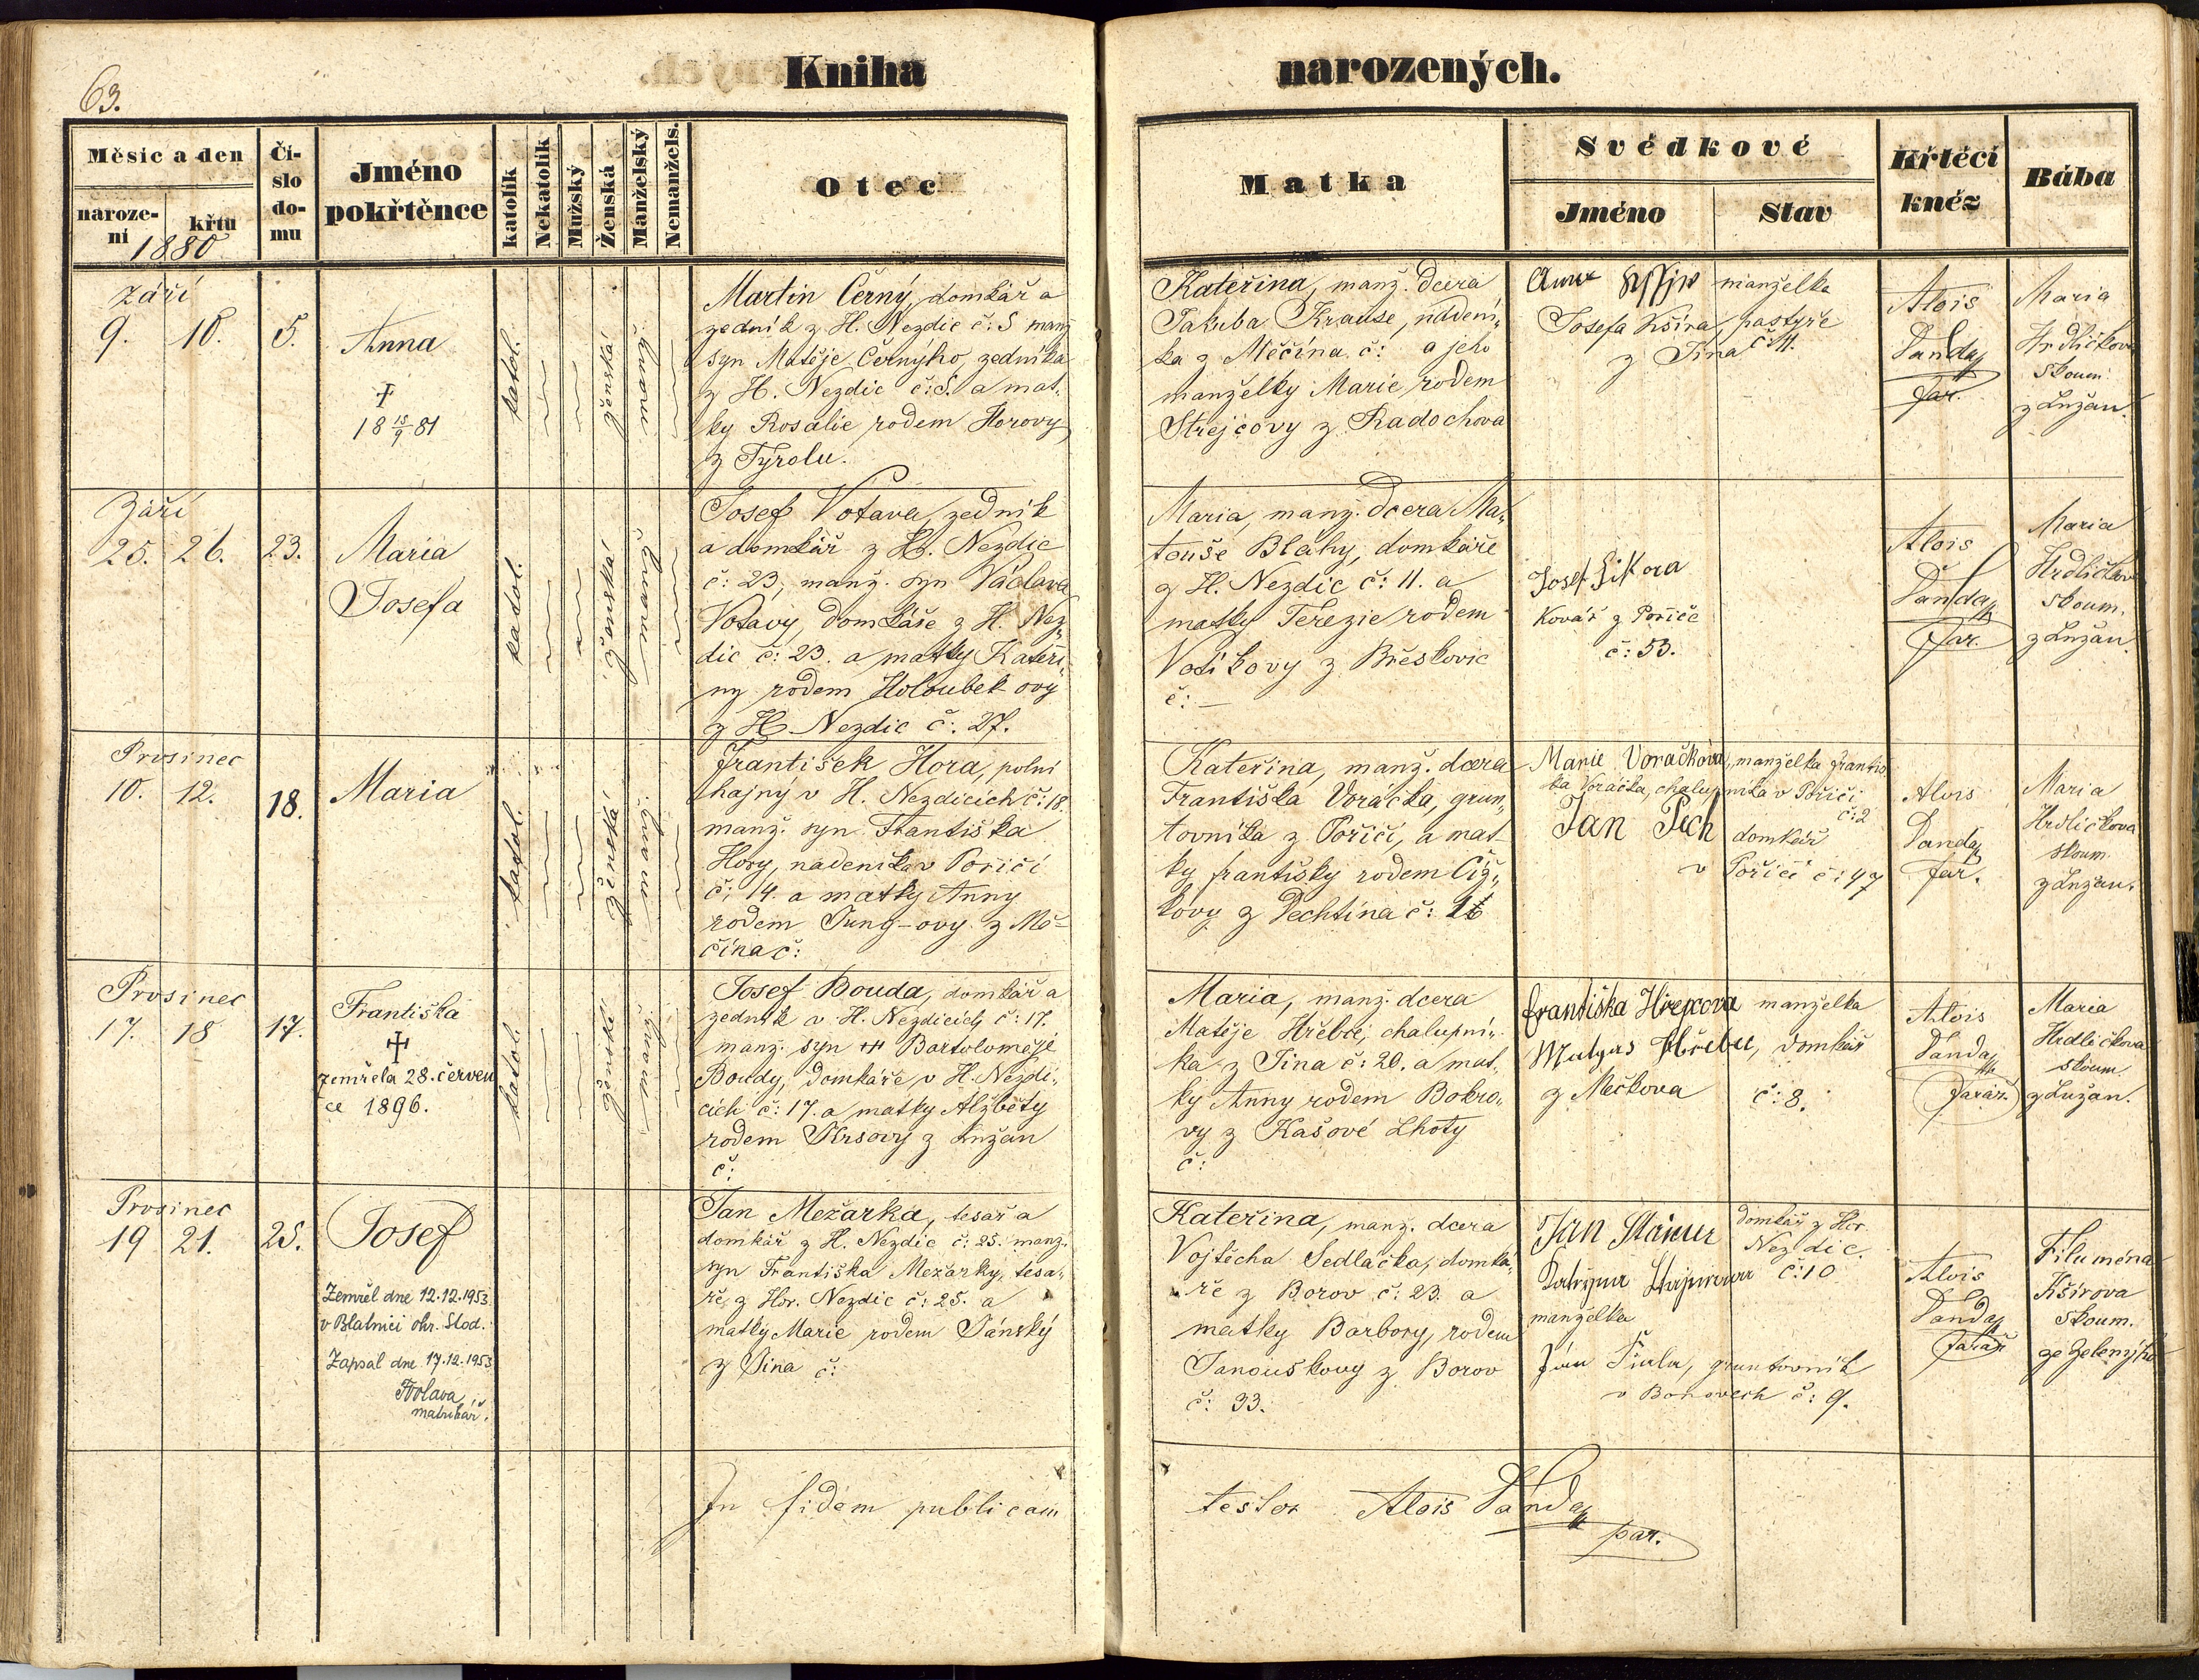 63.
Kniha narozených.
Měsíc a den
naroze-
ní
křtu
1880
Čí-
slo
do-
mu
Jméno
pokřtěnce
katolík
Nekatolík
Mužský
Ženská
Manželský
Nemanžels.
Otec
Matka
Svědkové
Jméno
Stav
Křtěcí
kněz
Bába
Září
9. 10. 5.
Anna
†
18 18/9 81
katol.
ženská
Martin Černý, domkář a
zedník z H. Nezdic č: 5 manž
syn Matěje Černýho zedníka
z H. Nezdic č: 5. a mat-
ky Rosalie rodem Horovy
z Tyrolu.
Kateřina, manž. dcera
Jakuba Krause, nádení-
ka z Měčína č: a jeho
manželky Marie rodem
Strejcovy z Radochova
manželka
Josefa Kšíra, pastýře
z Jína č 11.
Alois
Vanda
far.
Maria
Hrdličkova
skoum.
z Lužan.
Září
25. 26. 23.
Maria
Josefa
katol.
ženská
Josef Votava, zedník
a domkář z H. Nezdic
č: 23, manž. syn Václava
Votavy, domkáře z H. Nez-
dic č: 23. a matky Kateři-
ny rodem Holoubek ovy
z H Nezdic č: 27.
Maria, manž. dcera Ma-
touše Bláhy, domkáře
z H. Nezdic č: 11. a
matky Terezie rodem
z Břeskovic
č: —
Josef
Kovář z Poříčí
č: 53.
Alois
Vanda
far.
Maria
Hrdličkov
skoum.
z Lužan.
Prosinec
10. 12. 18.
Maria
katol.
ženská
František Hora, polní
hajný v H. Nezdicích č: 18.
manž. syn Františka
Hory, nádeníka v Poříčí
č: 14. a matky Anny
rodem Jung-ovy z Mě-
čína č:
Kateřina, manž. dcera
Františka Voráčka, grun-
tovníka z Poříčí, a mat-
ky františky rodem Číž-
kovy z Dechtína č: 16
Marie Voračkova, manželka františ
ka Voráčka, chalupníka v Poříčí
č: 2
Jan Pech domkář
v Poříčí č: 47
Alois
Vanda
far.
Maria
Hrdličkova
skoum.
z Lužan.
Prosinec
17. 18 17.
Františka
†
zemřela 28. červen
ce 1896.
katol.
ženské
Josef Bouda, domkář a
zedník v H. Nezdicích č: 17.
manž. syn † Bartoloměje
Boudy, domkáře v H. Nezdi-
cích č: 17. a matky Alžběty
rodem Krsovy z Lužan
č:
Maria, manž. dcera
Matěje Hřebce, chalupní-
ka z Jína č: 20. a mat-
ky Anny rodem Bobro-
vy z Kašové Lhoty
č:
františka Hřepcova manželka
Hřebce, domkář
z Mečkova č: 8.
Alois
Vanda
farář.
Maria
Hrdličkova
skoum.
z Lužan.
Prosinec
19 21. 25.
Josef
Zemřel dne 12.12.1953
v Blatnici okr. Stod.
Zapsal dne 17.12.1953
matrikář.
Jan Mežarka, tesař a
domkář z H. Nezdic č: 25. manž.
syn Františka Mežarky, tesa-
ře z Hor. Nezdic č: 25. a
matky Marie rodem Jánský
z Jína č:
Kateřina, manž. dcera
Vojtěcha Sedláčka, domká-
ře z Borov č: 23. a
matky Barbory, rodem
Janouškovy z Borov
č: 33.
Jan domkář z Hor.
Nezdic.
č: 10
manželka
gruntovník
v Borovech č: 9.
Alois
Vanda
farář
Filuména
Kšírova
skoum.
ze
In fidem publicam
testor Alois Vanda
par.